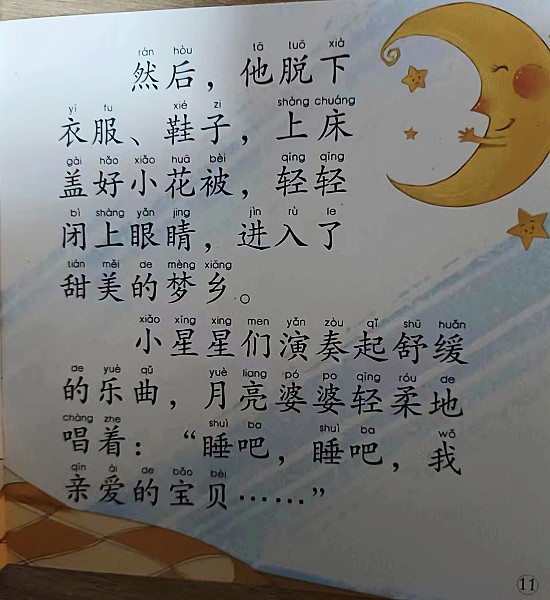 rán hòu tā tuō xià
然后，他脱下
yī fu xié zi shàng chuáng
衣服、鞋子，上床
gài hǎo xiǎo huā bèi qīng qīng
盖好小花被，轻轻
bì shàng yǎn jing jìn rù le
闭上眼睛，进入了
tián měi de mèng xiāng
甜美的梦乡。
xiǎo xīng xing men yǎn zòu qǐ shū huǎn
小星星们演奏起舒缓
de yuè qǔ yuè liang pó po qīng róu de
的乐曲，月亮婆婆轻柔地
chàng zhe shuì ba shuì ba wǒ
唱着：“睡吧，睡吧，我
qīn ài de bǎo bèi
亲爱的宝贝……”
11